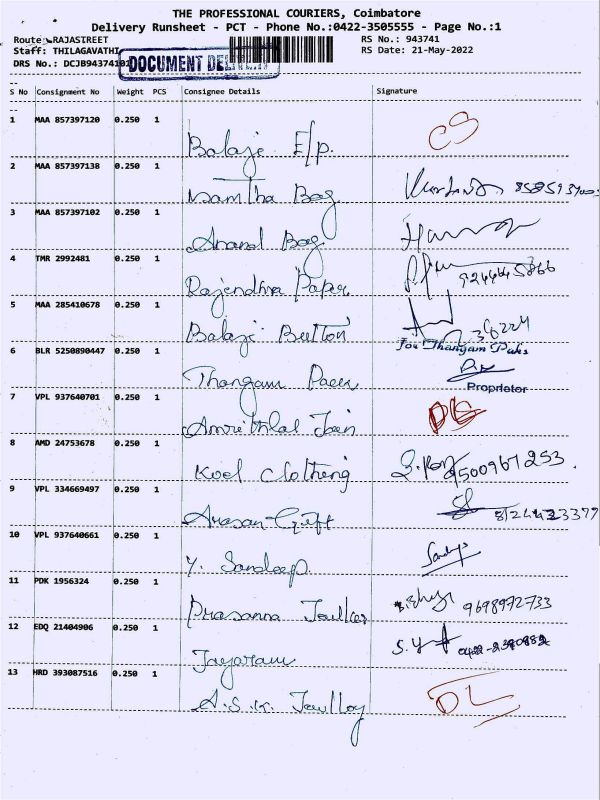 THE PROFESSIONAL COURIERS, Coimbatore
Delivery Runsheet - PCT - Phone No.:0422-3505555 - Page No.:1
Route :RAJASTREET RS No.: 943741
Staff: THILAGAVATHI RS Date: 21-May-2022
DRS No.: DCJB94374101 DOCUMENT
S No Consignment No Weight PCS Consignee Details Signature
1 MAA 857397120 0.250 1
Balaji E/p. CS
2 MAA 857397138 0.250 1
Namitha Bag
3 MAA 857397102 0.250 1
Anand Bag
4 TMR 2992481 0.250 1
Rajendhra Paper
5 MAA 285410678 0.250 1
Balaji Button
For Thangam Paks
6 BLR 5250890447 0.250 1
Thangam
Proprietor
7 VPL 937640701 0.250 1
Amrithlal Jain
8 AMD 24753678 0.250 1
Kool Clothing 9500967253
9 VPL 334669497 0.250 1
Arasan Gift
10 VPL 937640661 0.250 1
Y. Sandeep Sandeep
11 PDK 1956324 0.250 1
Prasanna 9698972733
12 EDQ 21404906 0.250 1
Jayaram
13 HRD 393087516 0.250 1
A.S.K. DL